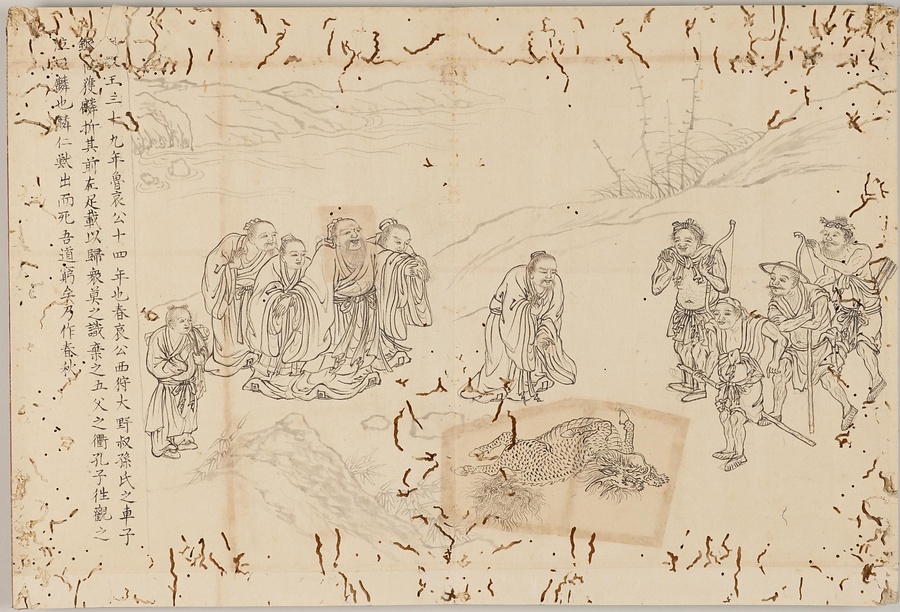 王三十九年魯哀公十四年也春哀公西狩大野叔孫氏之車子
獲麟折其前左足載以歸衆莫之識棄之五父之衢孔子徃觀之
麟也麟仁獸出而死吾道窮矣乃作春秋